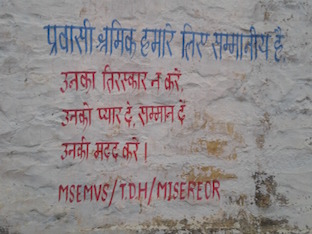 प्रवासी श्रमिक हमारे लिए सम्मानीय है,
उनका तिरस्कार न करें,
उनको प्यार दें, सम्मान दें
उनकी मदद करें।
MSEMVS/T.D.H/MISEREOR